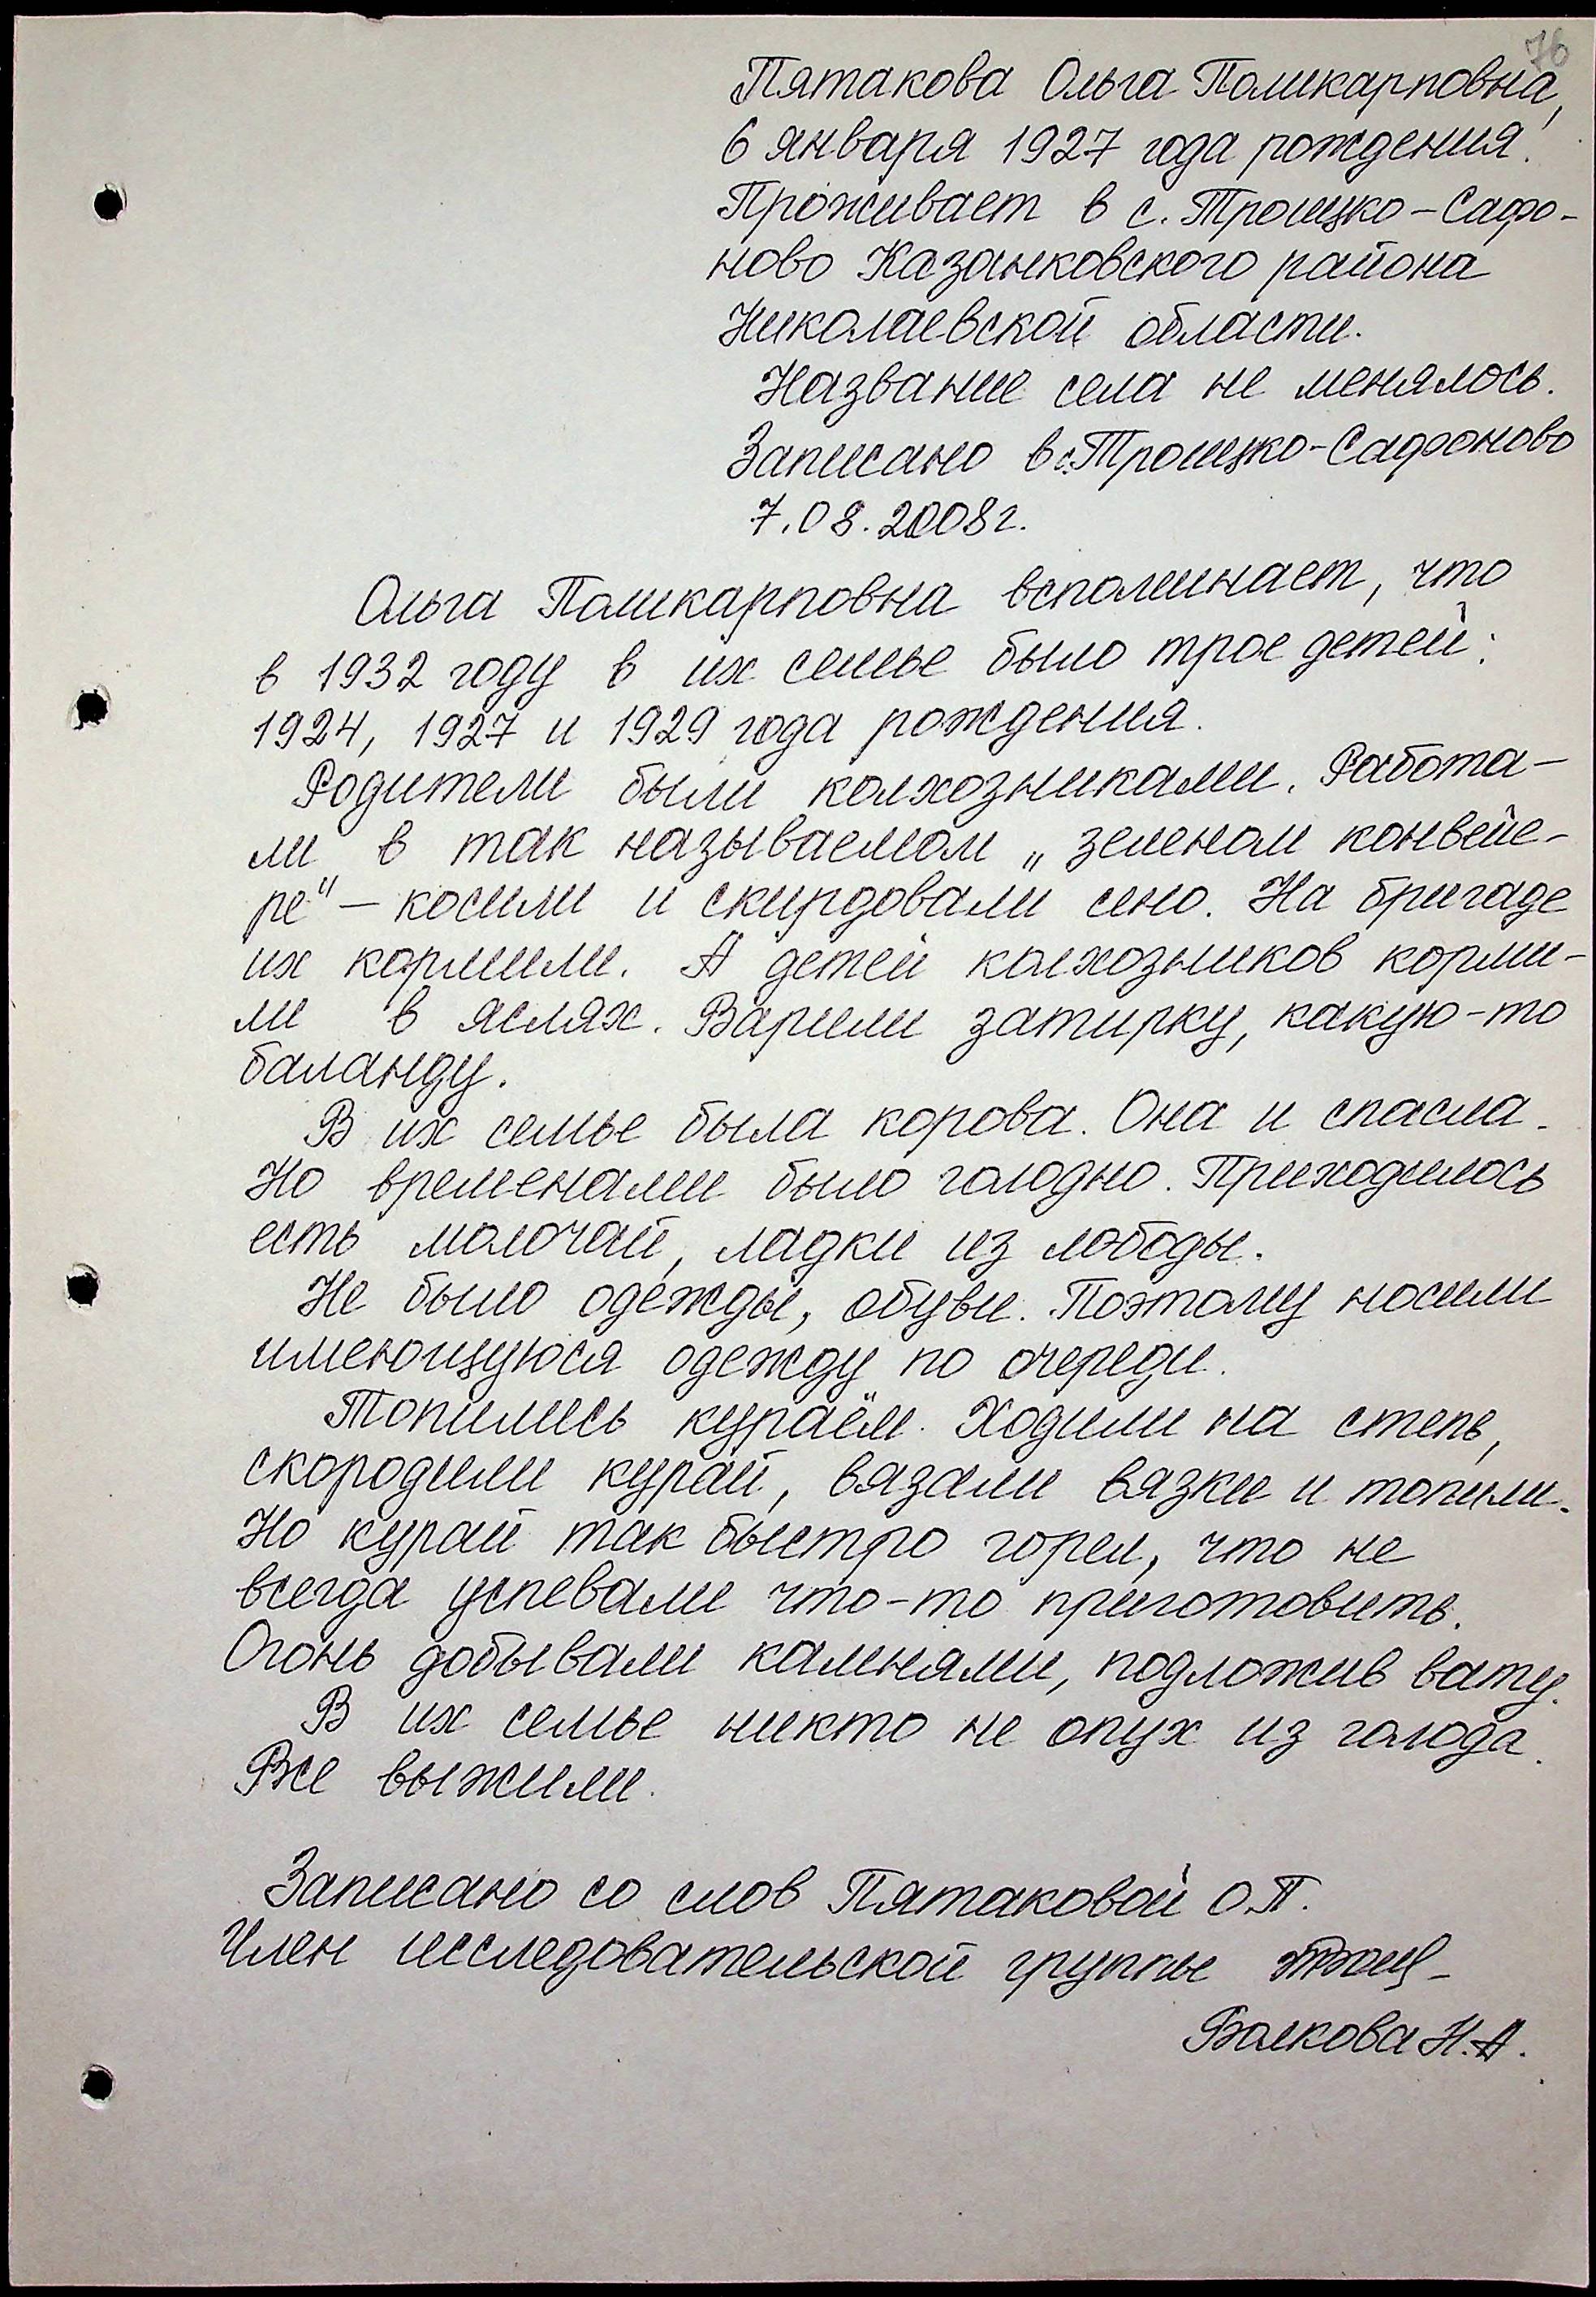 76
Пятакова Ольга Поликарповна,
6 января 1927 года рождения.
Проживает в с. Троицко-Сафо-
ново Казанковского района
Николаевской области.
Название села не менялось.
Записано в с. Троицко-Сафоново
7.08.2008г.
Ольга Поликарповна вспоминает, что
в 1932 году в их семье было трое детей:
1924, 1927 и 1929 года рождения.
Родители были колхозниками. Работа-
ли в так называемом „зеленом конвейе-
ре" – косили и скирдовали сено. На бригаде
их кормили. А детей колхозников корми-
ли в яслях. Варили затирку, какую-то
баланду.
В их семье была корова. Она и спасла.
Но временами было голодно. Приходилось
есть молочай, ладки из лободы.
Не было одежды, обуви. Поэтому носили
имеющуюся одежду по очереди.
Топились кураём. Ходили на степь,
скородили курай, вязали вязки и топили.
Но курай так быстро горел, что не
всегда успевали что-то приготовить.
Огонь добывали камнями, подложив вату.
В их семье никто не опух из голода.
Все выжили.
Записано со слов Пятаковой О.П.
Член исследовательской группы
Волкова Н.А.